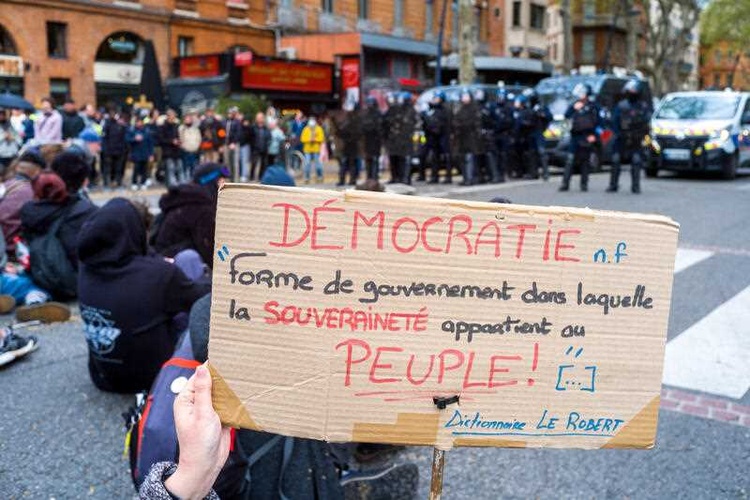 DÉMOCRATIE n.f
"forme de gouvernement dans laquelle
la SOUVERAINETÉ appartient au
PEUPLE! "
[...]
Dictionnaire LE ROBERT